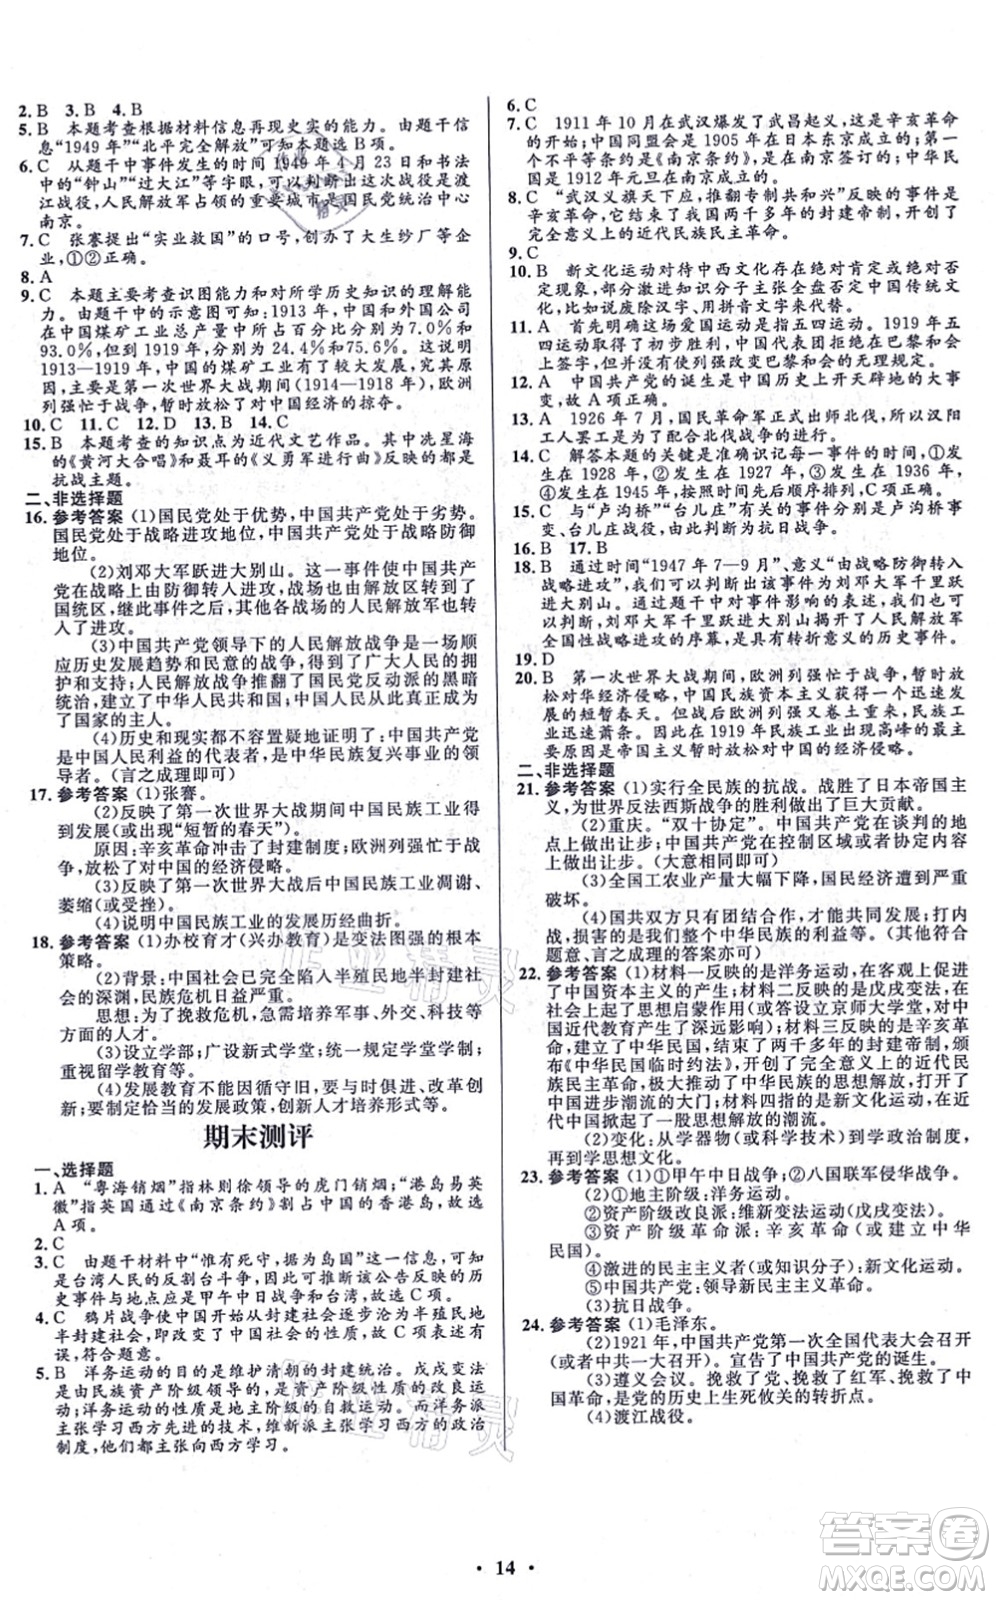 2. B　3. B　4. B
5. B　本题考查根据材料信息再现史实的能力。由题干信
息“1949 年”“北平完全解放”可知本题选 B 项。
6. C　从题干中事件发生的时间 1949 年 4 月 23 日和书法
中的“钟山”“过大江”等字眼，可以判断出这次战役是渡
江战役，人民解放军占领的重要城市是国民党统治中心
南京。
7. C　张謇提出“实业救国”的口号，创办了大生纱厂等企
业，①②正确。
8. A
9. C　本题主要考查识图能力和对所学历史知识的理解能
力。由题干中的示意图可知：1913 年，中国和外国公司
在中国煤矿工业总产量中所占百分比分别为 7.0％和
93.0％，但到 1919 年，分别为 24.4％和 75.6％。这说明
1913—1919 年，中国的煤矿工业有了较大发展。究其原
因，主要是第一次世界大战期间(1914—1918 年)，欧洲
列强忙于战争，暂时放松了对中国经济的掠夺。
10. C　11. C　12. D　13. B　14. C
15. B　本题考查的知识点为近代文艺作品。其中冼星海
的《黄河大合唱》和聂耳的《义勇军进行曲》反映的都是
抗战主题。
二、非选择题
16. 参考答案 (1)国民党处于优势，中国共产党处于劣势。
国民党处于战略进攻地位，中国共产党处于战略防御
地位。
(2)刘邓大军跃进大别山。这一事件使中国共产
党在战略上由防御转入进攻，把战争引向了
国统区，继此事件之后，其他各战场的人民解放军也转
入了进攻。
(3)中国共产党领导下的人民解放战争是一场顺
应历史发展趋势和民意的战争，得到了广大人民的拥
护和支持；人民解放战争推翻了国民党反动派的黑暗
统治，建立了中华人民共和国，中国人民从此真正成为
了国家的主人。
(4)历史和现实都不容置疑地证明了：中国共产党
是中国人民利益的代表者，是中华民族复兴事业的领
导者。(言之成理即可)
17. 参考答案 (1)张謇。
(2)反映了第一次世界大战期间中国民族工业得
到发展(或出现“短暂的春天”)。
原因：辛亥革命冲击了封建制度；欧洲列强忙于战
争，放松了对中国的经济侵略。
(3)反映了第一次世界大战后中国民族工业凋谢、
萎缩(或受挫)。
(4)说明中国民族工业的发展历经曲折。
18. 参考答案 (1)办校育才(兴办教育)是变法图强的根本
策略。
(2)背景：中国社会已完全陷入半殖民地半封建社
会的深渊，民族危机日益严重。
思想：为了挽救危机，急需培养军事、外交、科技等
方面的人才。
(3)设立学部；广设新式学堂；统一规定学堂学制；
重视留学教育等。
(4)发展教育不能因循守旧，要与时俱进、改革创
新；要制定恰当的发展政策，创新人才培养形式等。
期末测评
一、选择题
1. A　“粤海销烟”指林则徐领导的虎门销烟；“港岛易英
徽”指英国通过《南京条约》割占中国的香港岛，故选
A 项。
2. C
3. C　由题干材料中“惟有死守，据为岛国”等信息，可知
是台湾人民的反割台斗争，因此可推断该公告反映的历
史事件与地点应是甲午中日战争和台湾，故选 C 项。
4. C　鸦片战争使中国开始从封建社会逐步沦为半殖民地
半封建社会，即改变了中国社会的性质，故 C 项表述有
误，符合题意。
5. B　洋务运动的目的是维护清朝的封建统治。戊戌变法
是由民族资产阶级领导的，是资产阶级性质的改良运
动。洋务运动是由地主阶级领导的运动。而洋务派主
张学习西方先进的技术，维新派主张学习西方的政治
制度，他们都主张向西方学习。
6. C
7. C　1911 年 10 月在武汉爆发了武昌起义，这是辛亥革命
的开始；中国同盟会是 1905 年在日本东京成立的；第一
个不平等条约是《南京条约》，是在南京签订的；中华民
国是 1912 年元旦在南京成立的。
8. C　“武汉义旗天下应，推翻专制共和兴”反映的事件是
辛亥革命，它结束了中国两千多年的封建帝制，开创了
完全意义上的近代民族民主革命。
9. C
10. B　新文化运动对待中西文化存在绝对肯定或绝对否
定现象，部分激进知识分子主张全盘否定中国传统文
化，比如废除汉字、用拼音文字来代替。
11. A　首先明确这场爱国运动是指五四运动。1919 年五
四运动取得了初步胜利，中国代表团拒绝在巴黎和会
上签字，但并没有使列强改变巴黎和会的无理规定。
12. A　中国共产党的诞生是中国历史上开天辟地的大事
变，故 A 项正确。
13. A　1926 年 7 月，国民革命军正式出师北伐，所以汉阳
工人罢工是为了配合北伐战争的进行。
14. C　解答本题的关键是准确识记每一事件的时间，①发
生在 1928 年，②发生在 1927 年，③发生在 1936 年，
④发生在 1945 年，按照先后顺序排列，C 项正确。
15. C　与“卢沟桥”“台儿庄”有关的事件分别是卢沟桥事
变、台儿庄战役，由此判断这场战争为抗日战争。
16. B　17. B
18. B　通过时间“1947 年 7—9 月”、意义“由战略防御转入
战略进攻”，我们可以判断出该事件为刘邓大军千里跃
进大别山。根据题干中对事件影响的表述，我们可以
判断出，刘邓大军千里跃进大别山揭开了人民解放军
全国性战略进攻的序幕，是具有转折意义的历史事件。
19. D
20. B　第一次世界大战期间，欧洲列强忙于战争，暂时放
松对华经济侵略，中国民族资本主义发展出现了
短暂春天。但大战后欧洲列强又卷土重来，民族工
业迅速萧条。因此在 1919 年民族工业出现高峰的主要
原因是帝国主义暂时放松对中国的经济侵略。
二、非选择题
21. 参考答案 (1)实行全民族的抗战。战胜了日本帝国主
义，为世界反法西斯战争的胜利做出了巨大贡献。
(2)重庆。“双十协定”。中国共产党在谈判的地
点上做出让步，中国共产党在控制区域或其他方面
做出让步。(大意相同即可)
(3)全国工农业产量大幅下降，国民经济遭到严重
破坏。
(4)国共双方只有团结合作，才能共同发展；打内
战，损害的是我们中华民族的利益等。(其他符合
题意、言之成理的答案亦可)
22. 参考答案 (1)材料一反映的是洋务运动，在客观上促进
了中国资本主义的产生；材料二反映的是戊戌变法，在
社会上起了思想启蒙作用(或答设立京师大学堂，对中
国近代教育产生了深远影响)；材料三反映的是辛亥革
命，建立了中华民国，结束了两千多年的封建帝制，颁
布《中华民国临时约法》，是完全意义上的近代民族
民主革命，极大推动了中华民族的思想解放，打开了
中国进步潮流的大门；材料四指的是新文化运动，在近代
中国掀起了一股思想解放的潮流。
(2)变化：从学器物(或学科学技术)到学政治制度，
再到学思想文化。
23. 参考答案 (1)①甲午中日战争；②八国联军侵华战争。
(2)①地主阶级：洋务运动。
②资产阶级改良派：维新变法运动(戊戌变法)。
③资产阶级革命派：辛亥革命(或建立中华
民国)。
④激进的民主主义者(或知识分子)：新文化运动。
⑤中国共产党：领导新民主主义革命。
(3)抗日战争。
24. 参考答案 (1)毛泽东。
(2)1921 年，中国共产党第一次全国代表大会召开
(或者中共一大召开)。宣告了中国共产党的诞生。
(3)遵义会议。挽救了党、挽救了红军、挽救了中
国革命，是党的历史上生死攸关的转折点。
(4)渡江战役。
作业精灵
作业精灵
答案圈
MXQE.COM
· 14 ·